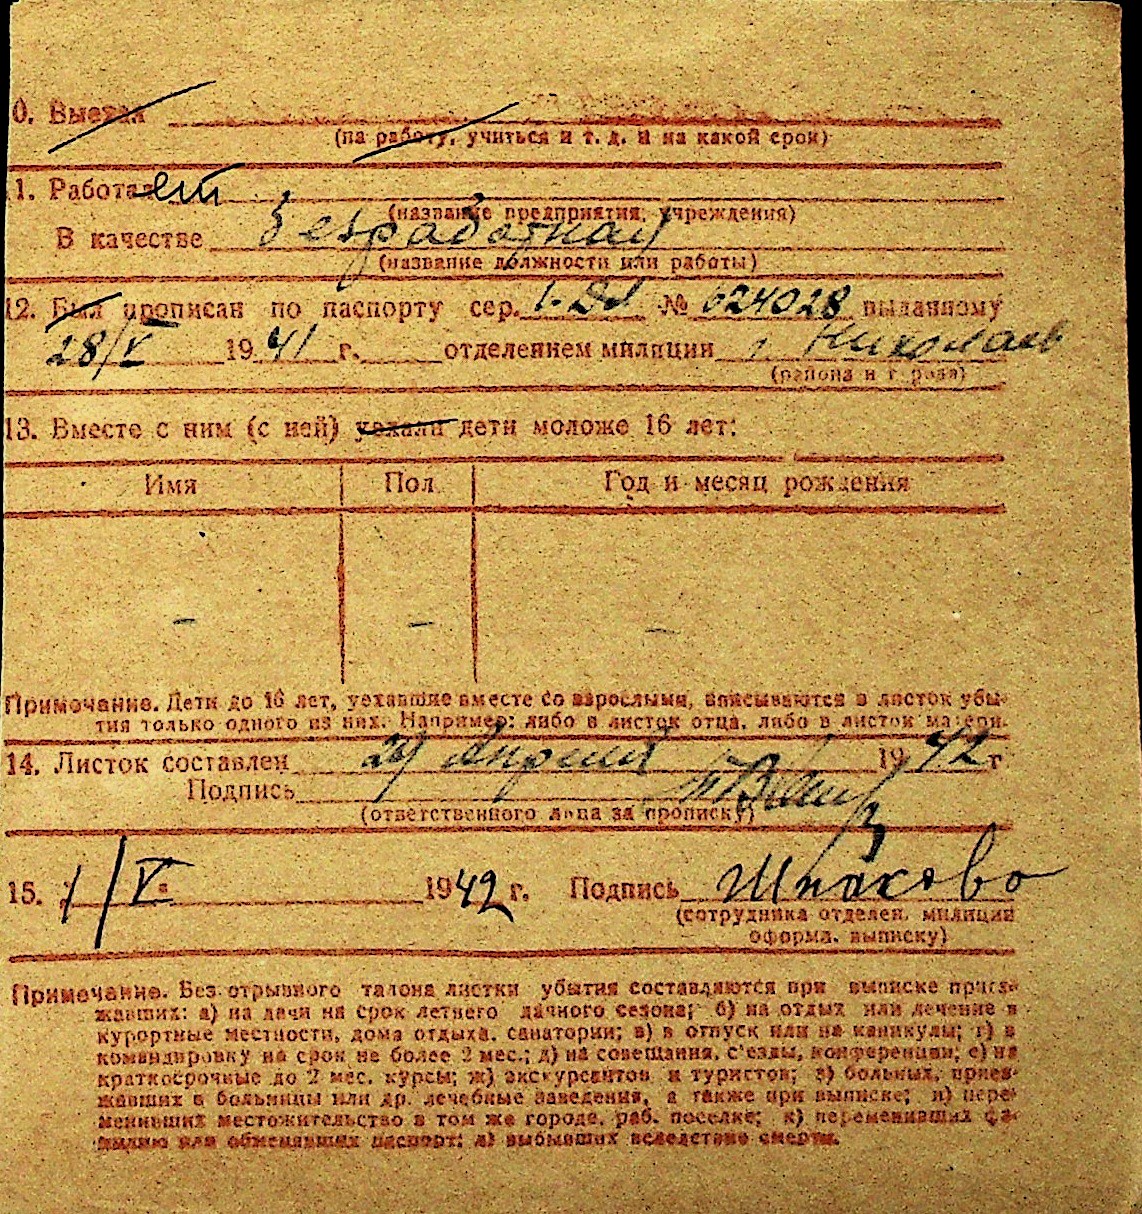 0. Выехал
(на работу, учиться и т. д. и на какой срок)
1. Работает
(название предприятия, учреждения)
В качестве безработная
(название должности или работы)
12. Был прописан по паспорту сер. № 624028 выданному
28/V 1941 г. отделением милиции г. Николаев
(района и города)
13. Вместе с ним (с ней) уехали дети моложе 16 лет:
Имя Пол Год и месяц рождения
- - -
Примечание. Дети до 16 лет, уехавшие вместе со взрослыми, вписываются в листок убы-
тия только одного из них. Например: либо в листок отца, либо в листок матери.
14. Листок составлен 29 Апреля 1942 г
Подпись
(ответственного лица за прописку)
15. 1/V 1942 г. Подпись Шпаково
(сотрудника отделен. милиции
оформл. выписку)
Примечание. Без отрывного талона листки убытия составляются при выписке приез-
жавших: а) на дачи на срок летнего дачного сезона; б) на отдых или лечение в
курортные местности, дома отдыха, санатории; в) в отпуск или на каникулы; г) в
командировку на срок не более 2 мес.; д) на совещания, с'езды, конференции; е) на
краткосрочные до 2 мес. курсы; ж) экскурсантов и туристов; з) больных, приез-
жавших в больницы или др. лечебные заведения, а также при выписке; и) пере-
менивших местожительство в том же городе, раб. поселке; к) переменивших фа-
милию или обменявших паспорт; л) выбывших вследствие смерти.